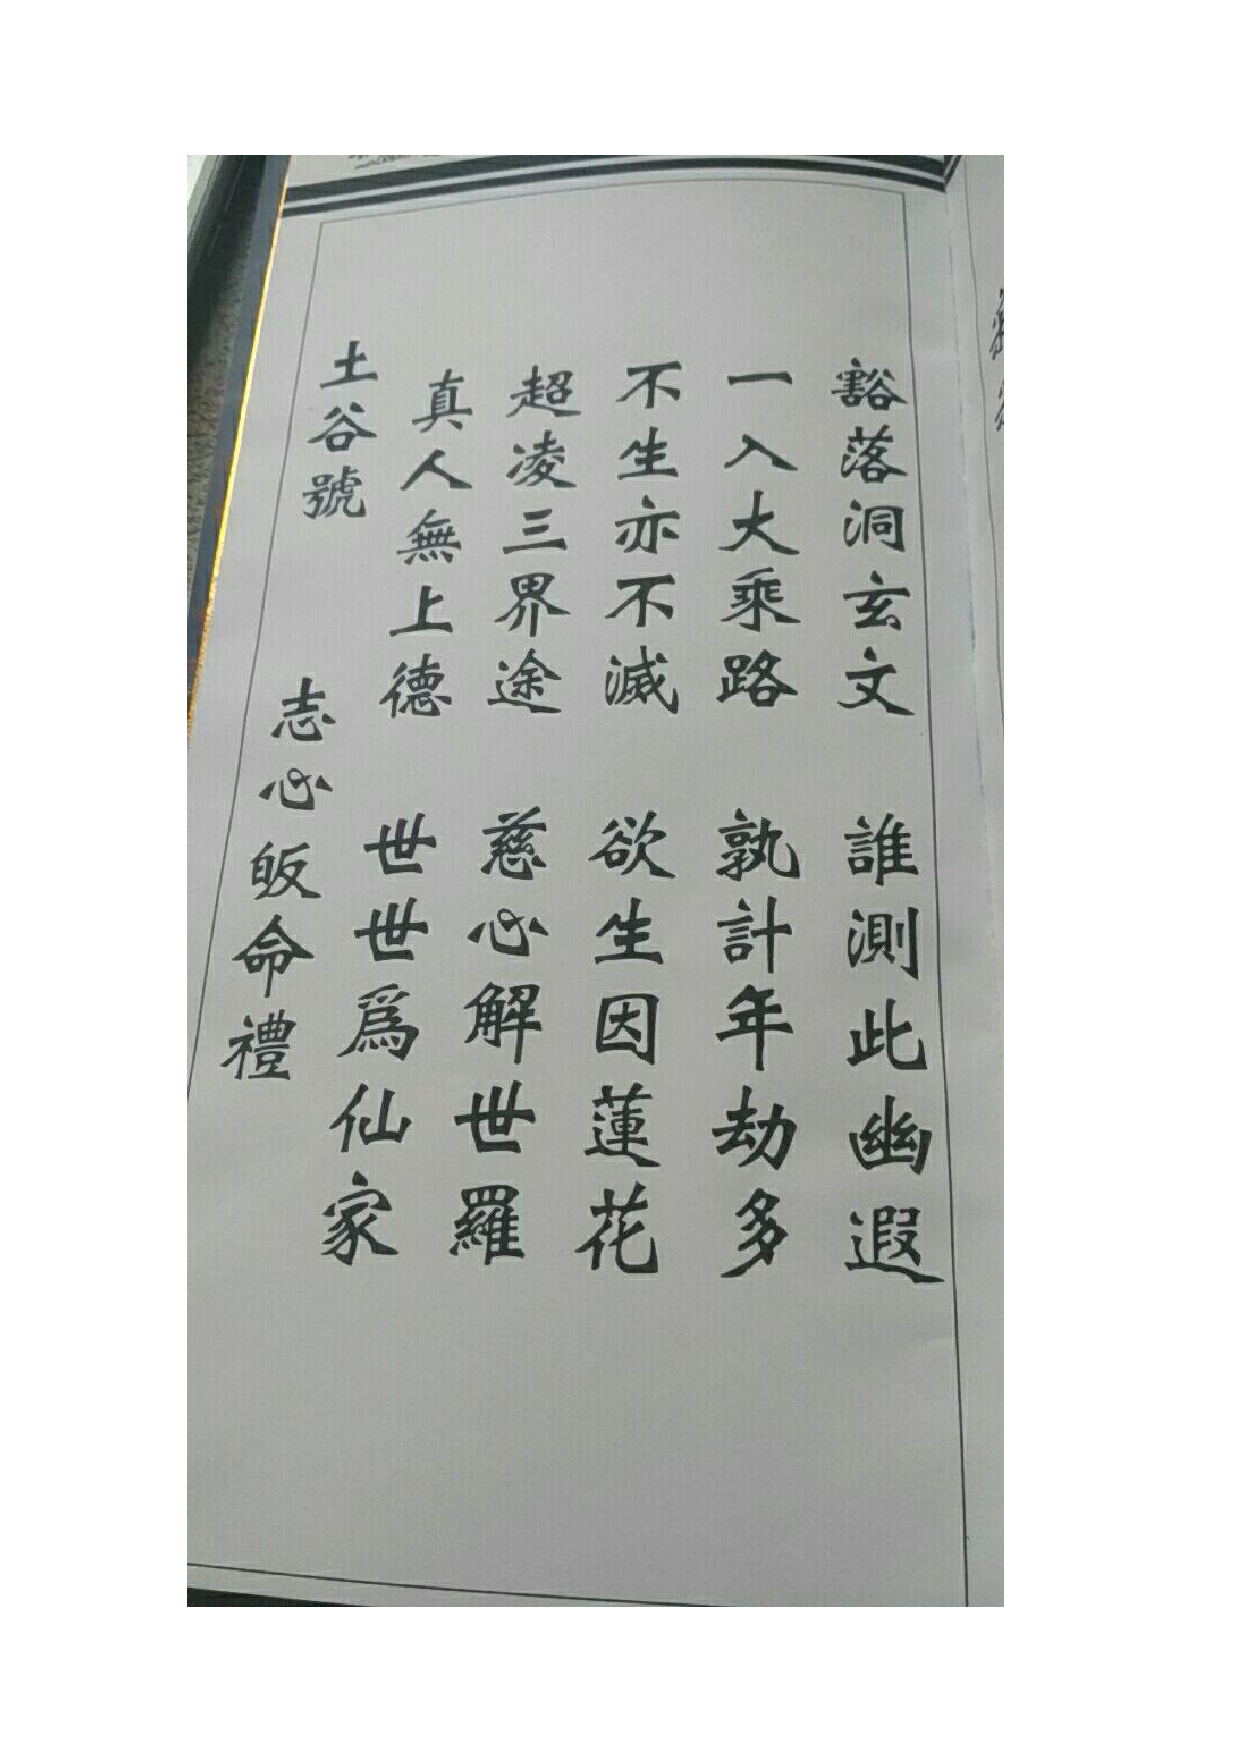 豁落洞玄文 誰測此幽遐
一入大乘路 孰計年劫多
不生亦不滅 欲生因蓮花
超凌三界途 慈心解世羅
真人無上德 世世爲仙家
土谷號 志心皈命禮